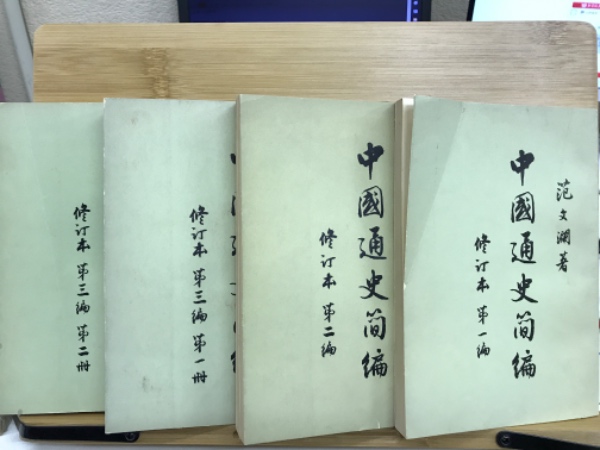 范文澜著
中國通史简编
修订本 第一编
中國通史简编
修订本 第二编
修订本 第三编 第一册
修订本 第三编 第二册